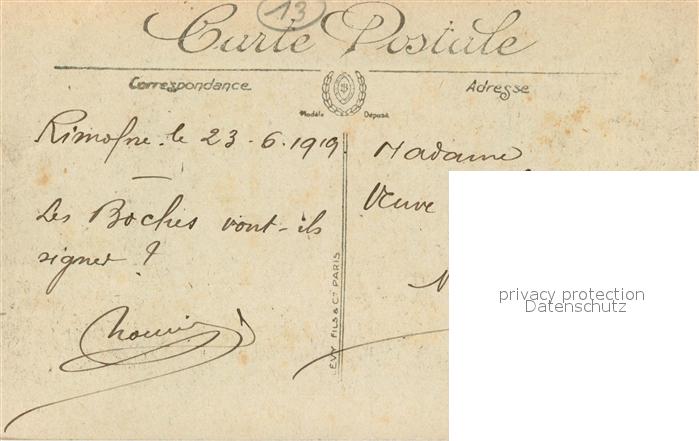 13
Carte Postale
Correspondance
Adresse
Modèle Déposé
Rimogne. le 23. 6. 1919
Madame
Veuve
Les Boches vont-ils
signer ?
LEVY FILS & Cie PARIS
privacy protection
Datenschutz